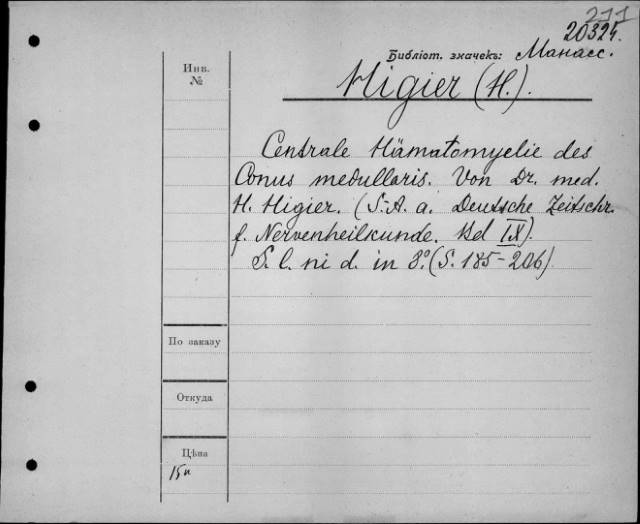 211
20324.
Библіот. значекъ: Манасс.
Инв.
№
Higier (H.).
Centrale Hämatomyelie des
Conus medullaris. Von Dr. med.
H. Higier. (S.-A. a. Deutsche Zeitschr.
f. Nervenheilkunde. Bd IX).
S. l. ni d. in 8º. (S. 185-206).
По заказу
Откуда
Цѣна
15 к